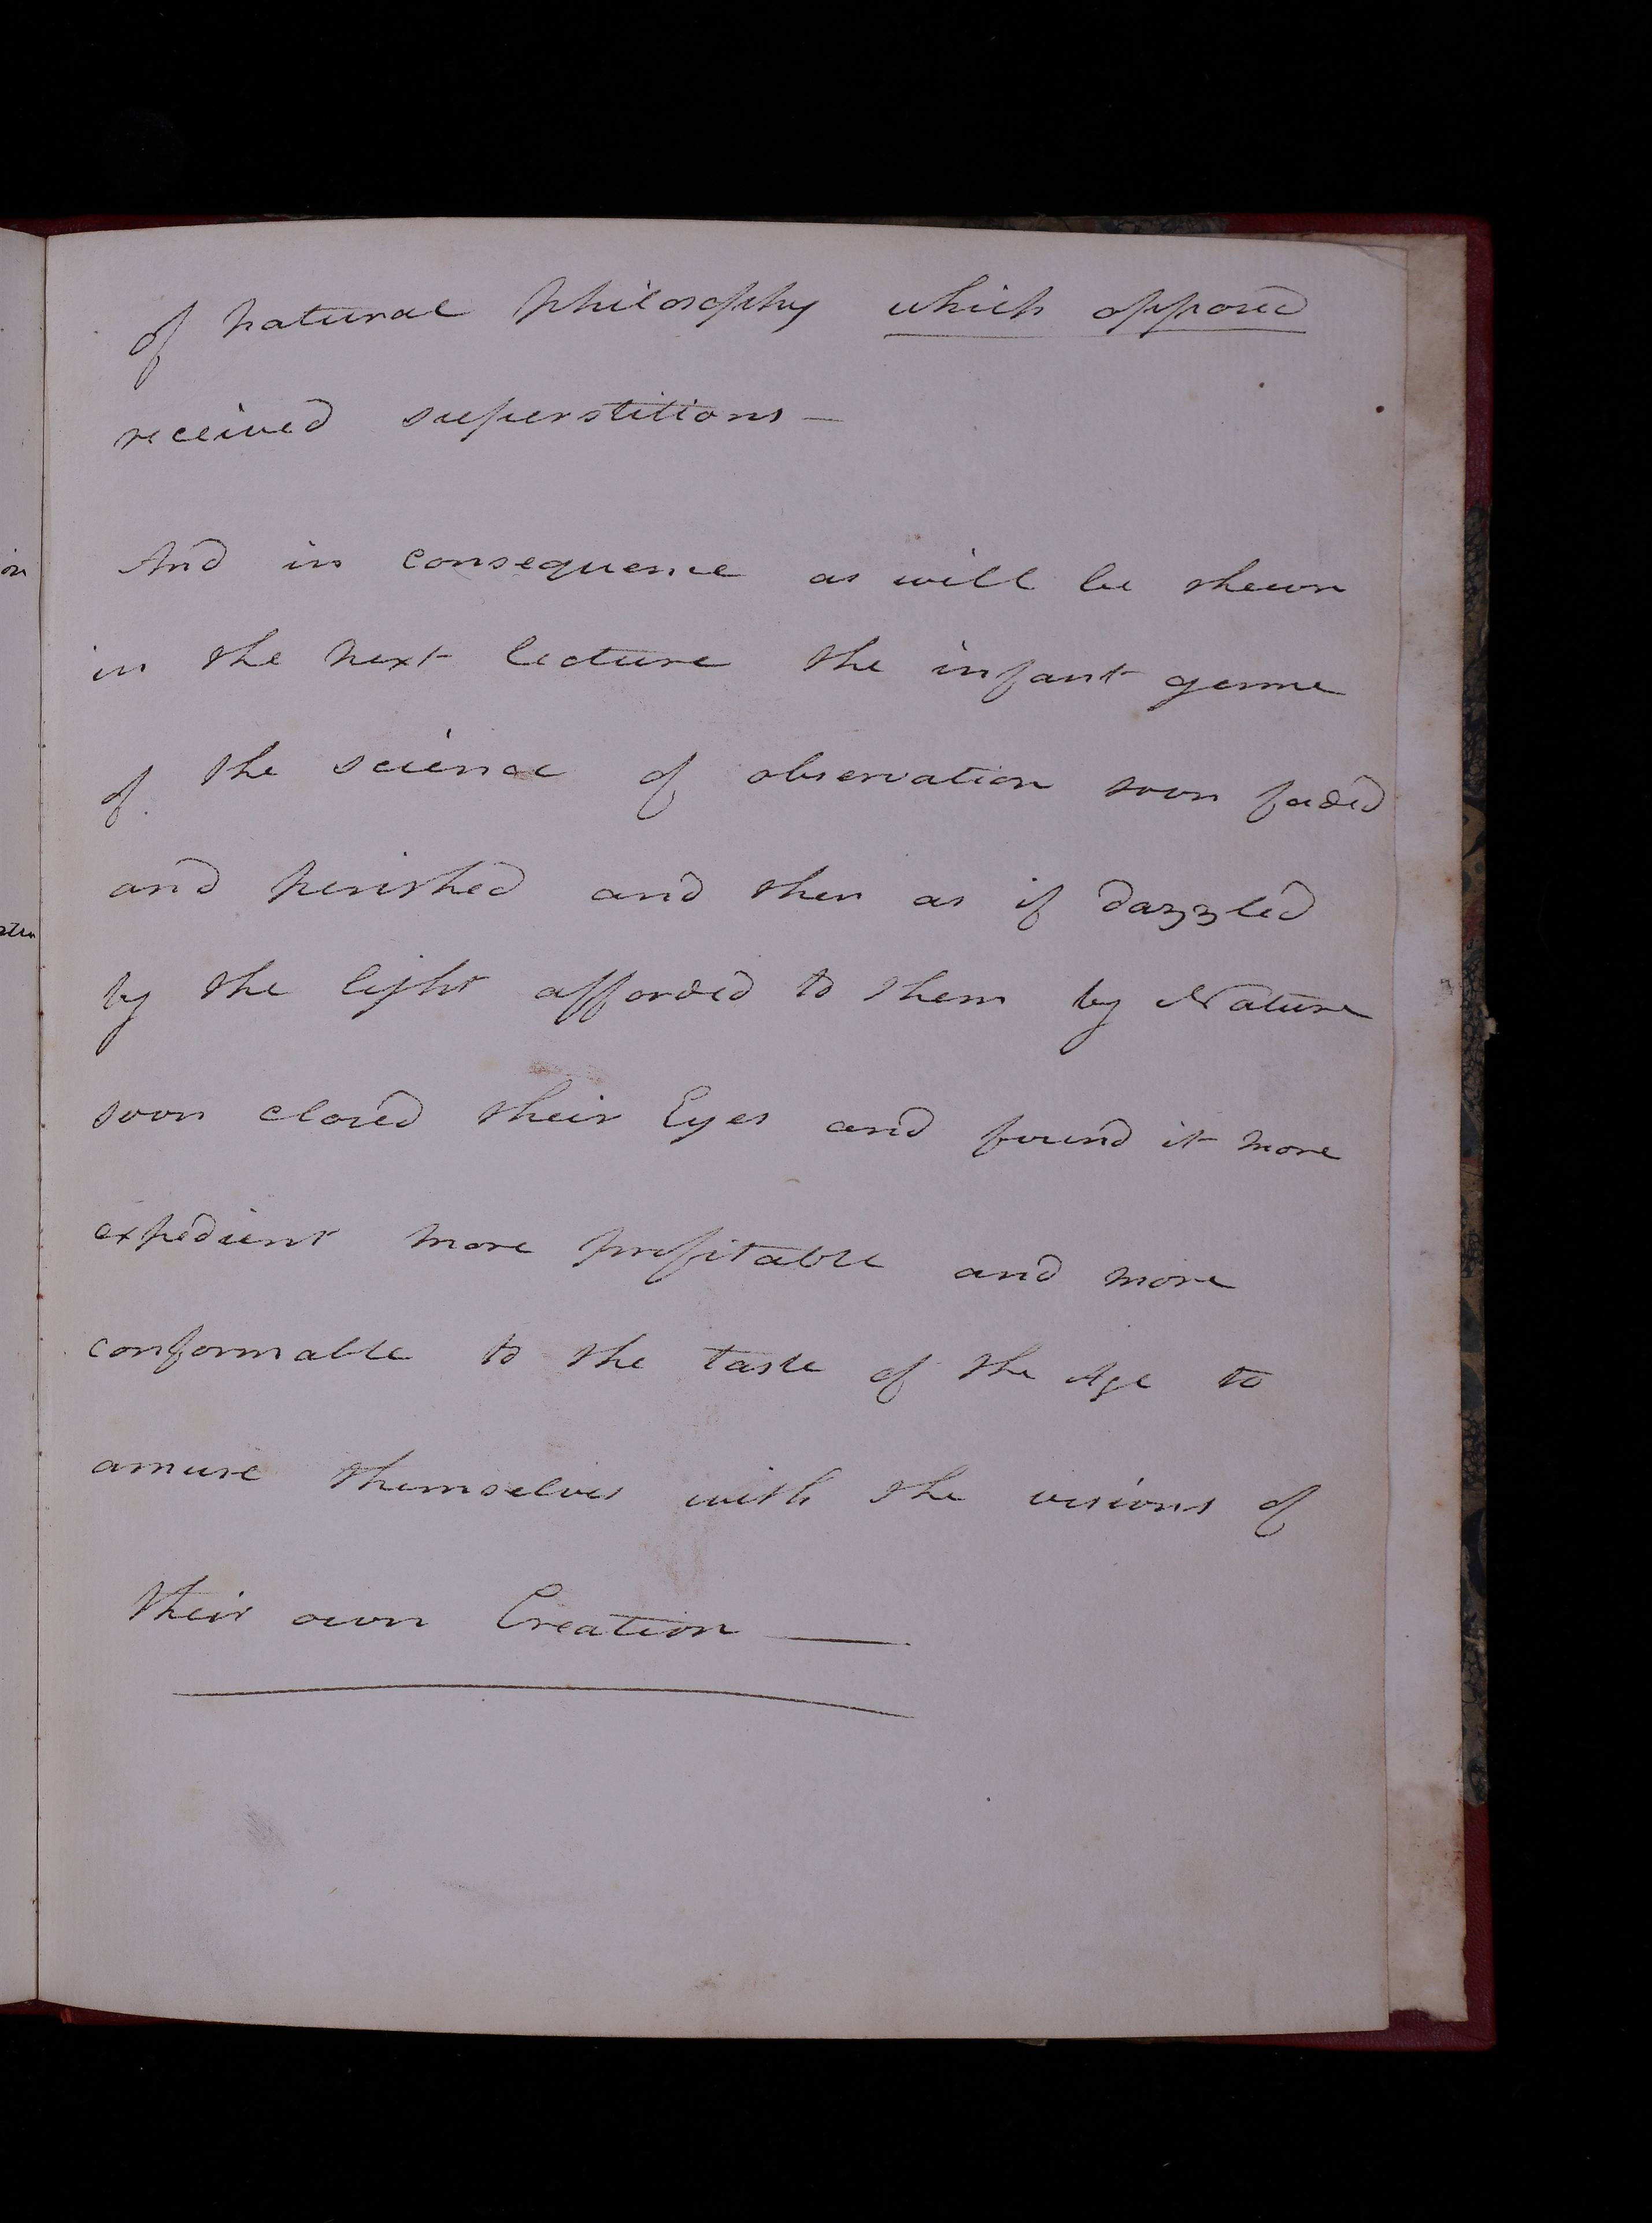 of natural philosophy which opposed
received superstitions —
And in consequence as will be shewn
in the next lecture the infant germe
of the science of observation soon faded
and perished and then as if dazzled
by the light afforded to them by Nature
soon closed their Eyes and found it more
expedient more profitable and more
conformable to the taste of the Age to
amuse themselves with the visions of
their own Creation —